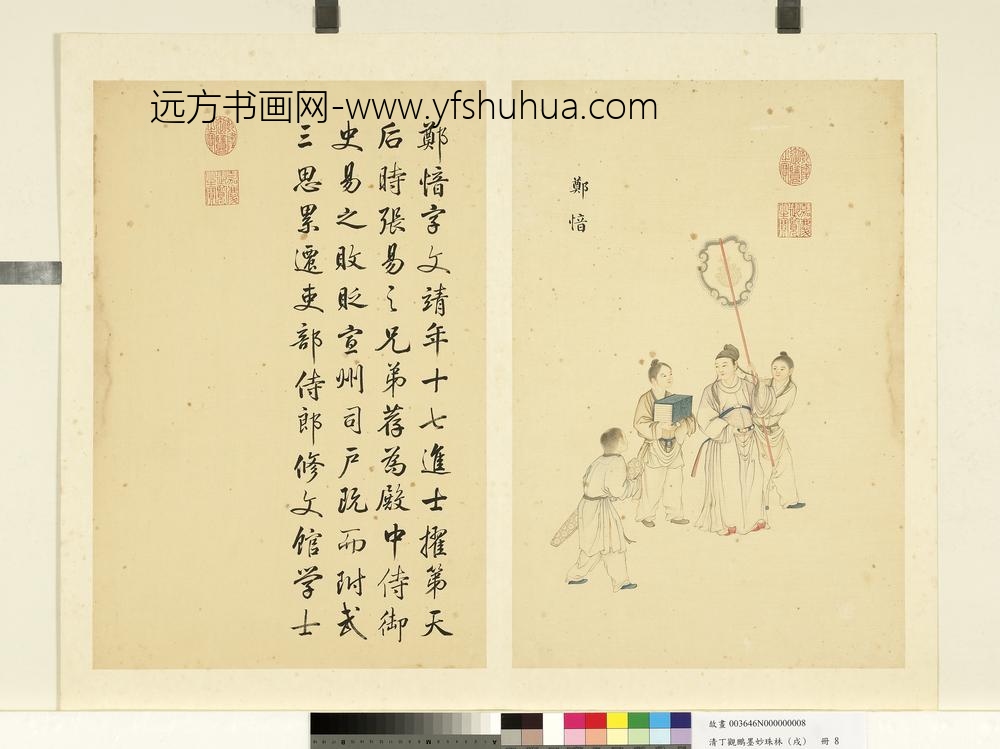 远方书画网-www.yfshuhua.com
鄭愔
鄭愔字文靖年十七進士擢第天
后時張易之兄弟荐為殿中侍御
史易之敗貶宣州司戶既而附武
三思累遷吏部侍郎修文馆学士
故畫 003646N000000008
清丁觀鵬墨妙珠林（戌） 冊 8